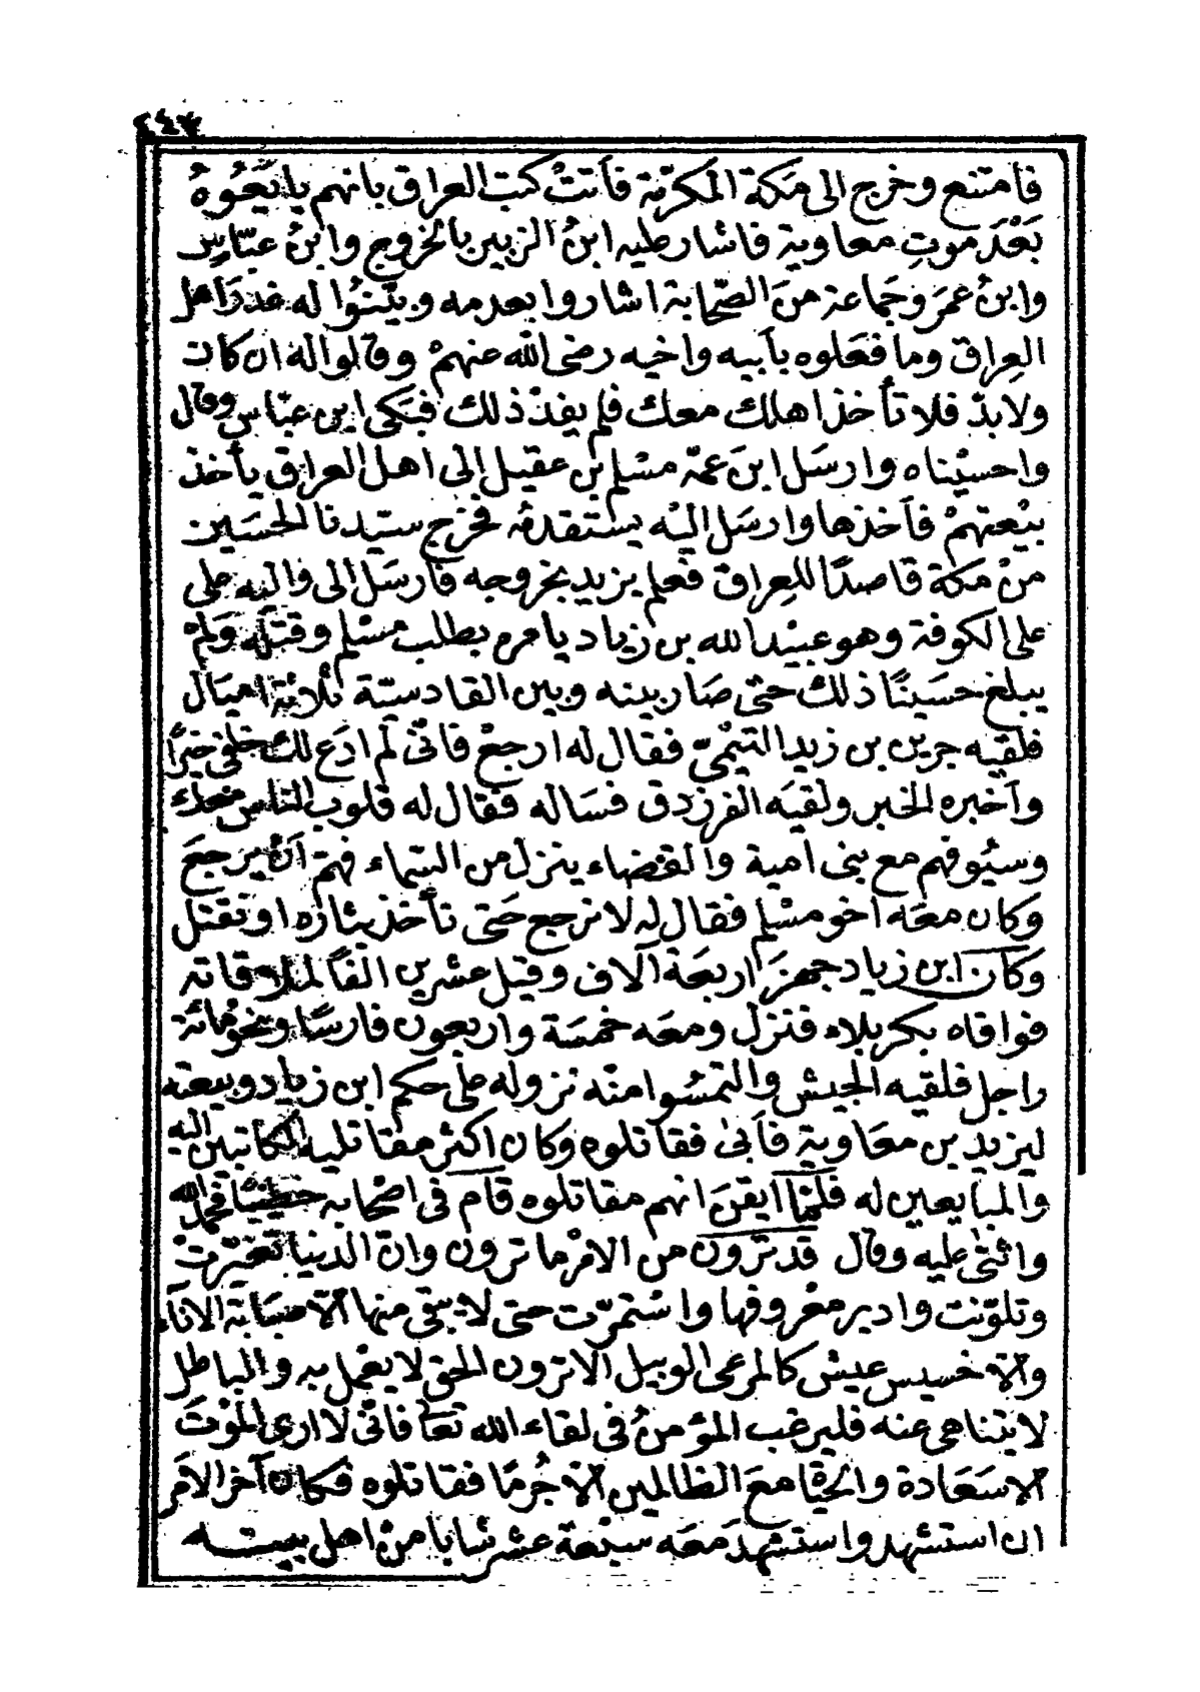 ٤٤٣
فامتنع وخرج الى مَكة المكرّمة فأتتْ كتب العراق بانهم بايَعُوهُ
بَعْدَ موتِ معاوية فاشار عليه ابنُ الزبير بالخروج وابنُ عبّاسٍ
وابنُ عمَرَ وجَماعة منَ الصّحابة اشاروا بعدمه وبيّنوُا له غدرَ اهل
العِراق وما فعَلوه بأبيه واخيه رضى الله عنهمْ وقالوا له ان كان
ولابدّ فلا تأخذ اهلك معك فلم يفدْ ذلك فبَكى ابن عبّاس وقال
واحسيْناه وارسَل ابنَ عمّه مسْلم بن عقيل الى اهل العراق يأخذ
بيْعتهمْ فأخذها وارسَل اليْه يستقدمُه فخرَج سيّدنا الحسَين
منْ مكة قاصدًا للعِراق فعلم يزيد بخروجه فأرسَل الى واليه على
على الكوفة وهو عبيْد الله بن زياد يامره بطلب مسْلم وقتله وَلمْ
يبلغ حسَينًا ذلك حتى صَار بينه وبين القادسيّة ثلاثة اميَال
فلقيه جرير بن زيد التيْمىّ فقال له ارجعْ فانى لم ادَع لك خلفى خيرًا
وأخبره الخبر ولقيَه الفرزدق فسَاله فقال له قلوب الناس معك
وسيُوفهم مع بنى امية والقضاء ينزل من السّماء فهَمّ انْ يرجعَ
وكان معَه اخو مسْلم فقال له لا نرجع حَتى نأخذ بثاره او نقتل
وَكان ابن زياد جهزَ اربعَة آلاف وقيل عشرين الفًا لملاقاته
فوافاه بكربلاء فنزل ومعَه خمسَة واربعون فارسًا ونحوُ مائة
راجل فلقيه الجيش والتمسُوا منْه نزوله على حكم ابن زياد وبيعته
ليزيد بن معَاوية فأبىٰ فقاتلوه وكان اكثر مقاتليه المكاتبين اليه
والمبايعين له فلمّا ايقنَ انهم مقاتلوه قام فى اصْحابه خطيبًا فحمد الله
واثنىٰ عليه وقال قد ترَون من الامْر ما ترون وانّ الدنيا تغيّرتْ
وتلوّنت وادبر معْروفها واسْتمرّت حتى لا يبقى منها الاّ صبَابة الاناء
والاّ خسيس عيش كالمرعى الوبيل الا ترون الحق لا يعْمل به والباطل
لا يتناهى عنه فليرغب المؤمنُ فى لقاء الله تعَالى فانى لا ارى الموْتَ
الا سَعَادة والحيٰاة معَ الظالمين الاّ جُرمًا فقاتلوه فكان آخر الامَر
ان استشهد واستشهدَ معَه سبْعَة عشر شابا منْ اهل بيته